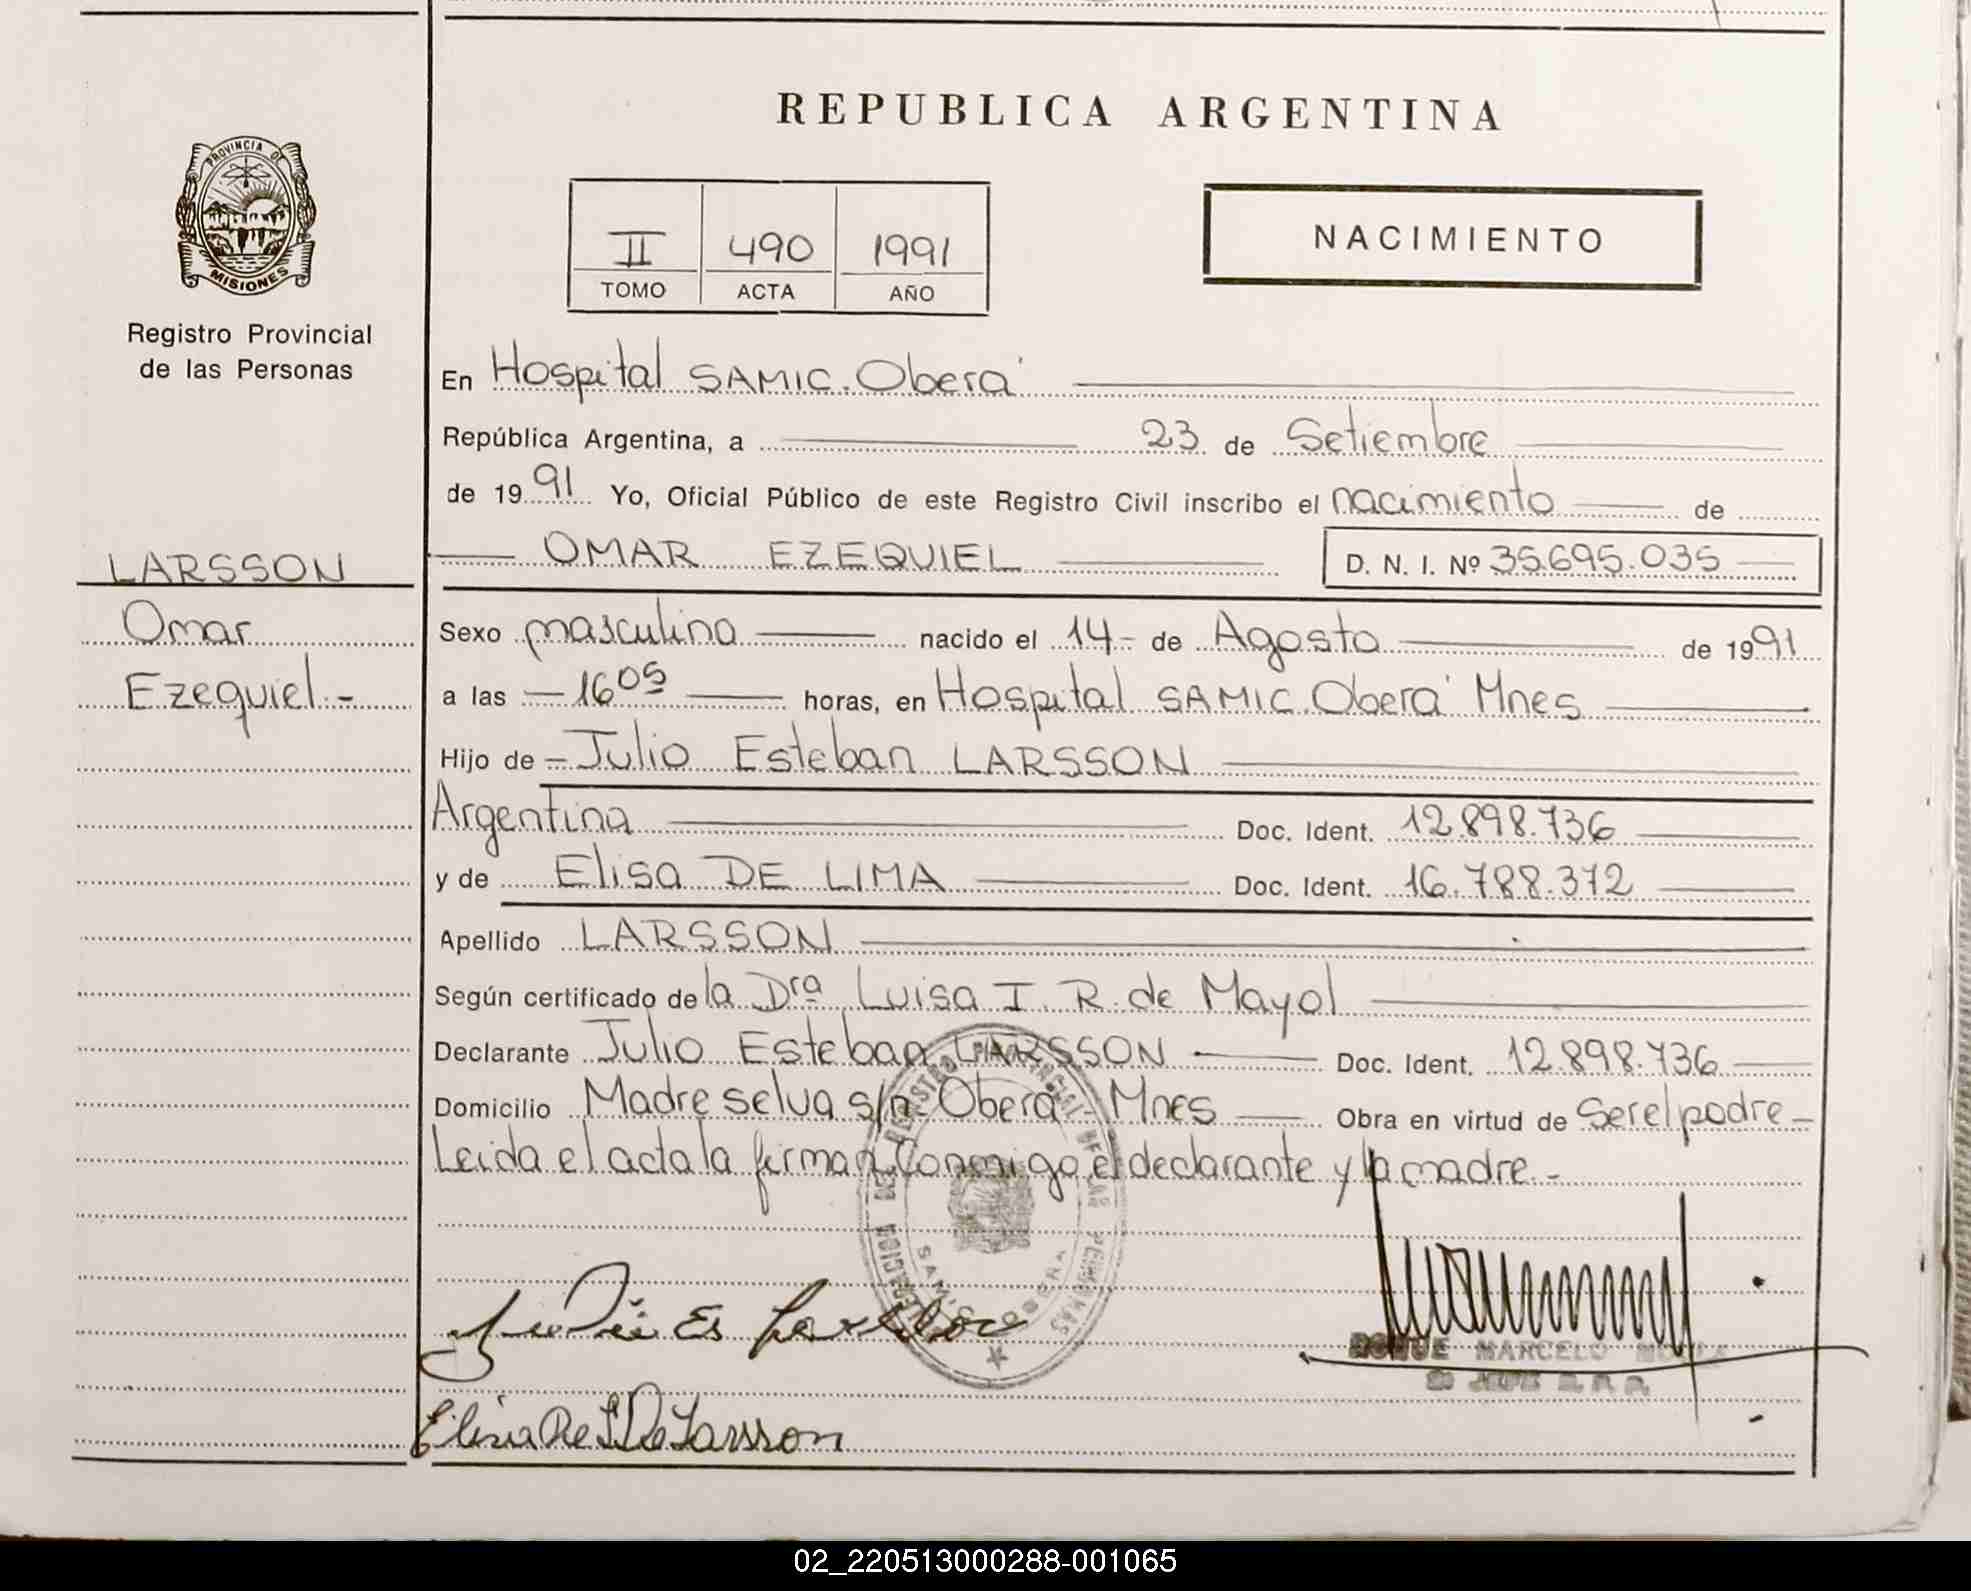 REPUBLICA ARGENTINA
PROVINCIA DE
MISIONES
Registro Provincial
de las Personas
II 490 1991
TOMO ACTA AÑO
NACIMIENTO
En Hospital SAMIC. Oberá
República Argentina, a 23 de Setiembre
de 1991 Yo, Oficial Público de este Registro Civil inscribo el nacimiento de
OMAR EZEQUIEL D. N. I. Nº 35.695.035
LARSSON
Omar
Ezequiel.-
Sexo masculino nacido el 14- de Agosto de 1991
a las 16 05 horas, en Hospital SAMIC. Oberá Mnes
Hijo de Julio Esteban LARSSON
Argentina Doc. Ident. 12.898.736
y de Elisa DE LIMA Doc. Ident. 16.788.372
Apellido LARSSON
Según certificado de la Dra Luisa I. R. de Mayol
Declarante Julio Esteban LARSSON Doc. Ident. 12.898.736
Domicilio Madreselva s/n. Oberá Mnes Obra en virtud de Ser el padre-
Leida el acta la firman conmigo el declarante y la madre.-
ROQUE MARCELO
Elisa De L De Larsson
02_220513000288-001065